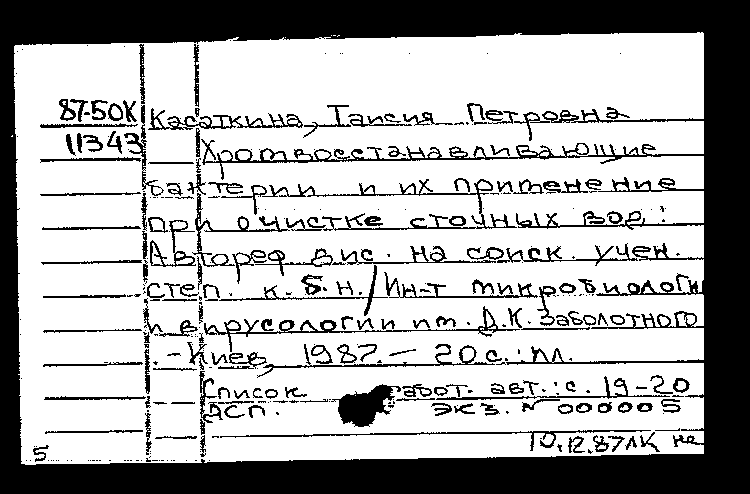 87-50К Касаткина, Таисия Петровна
11343 Хромвосстанавливающие
бактерии и их применение
при очистке сточных вод:
Автореф дис. на соиск. учен.
степ. к.б.н. / Ин-т микробиологии
и вирусологии им. Д.К. Заболотного
.-Киев, 1987.- 20 с.: ил.
Список работ. авт.: с. 19-20
ДСП. экз. № 000005
10.12.87 ЛК не
5